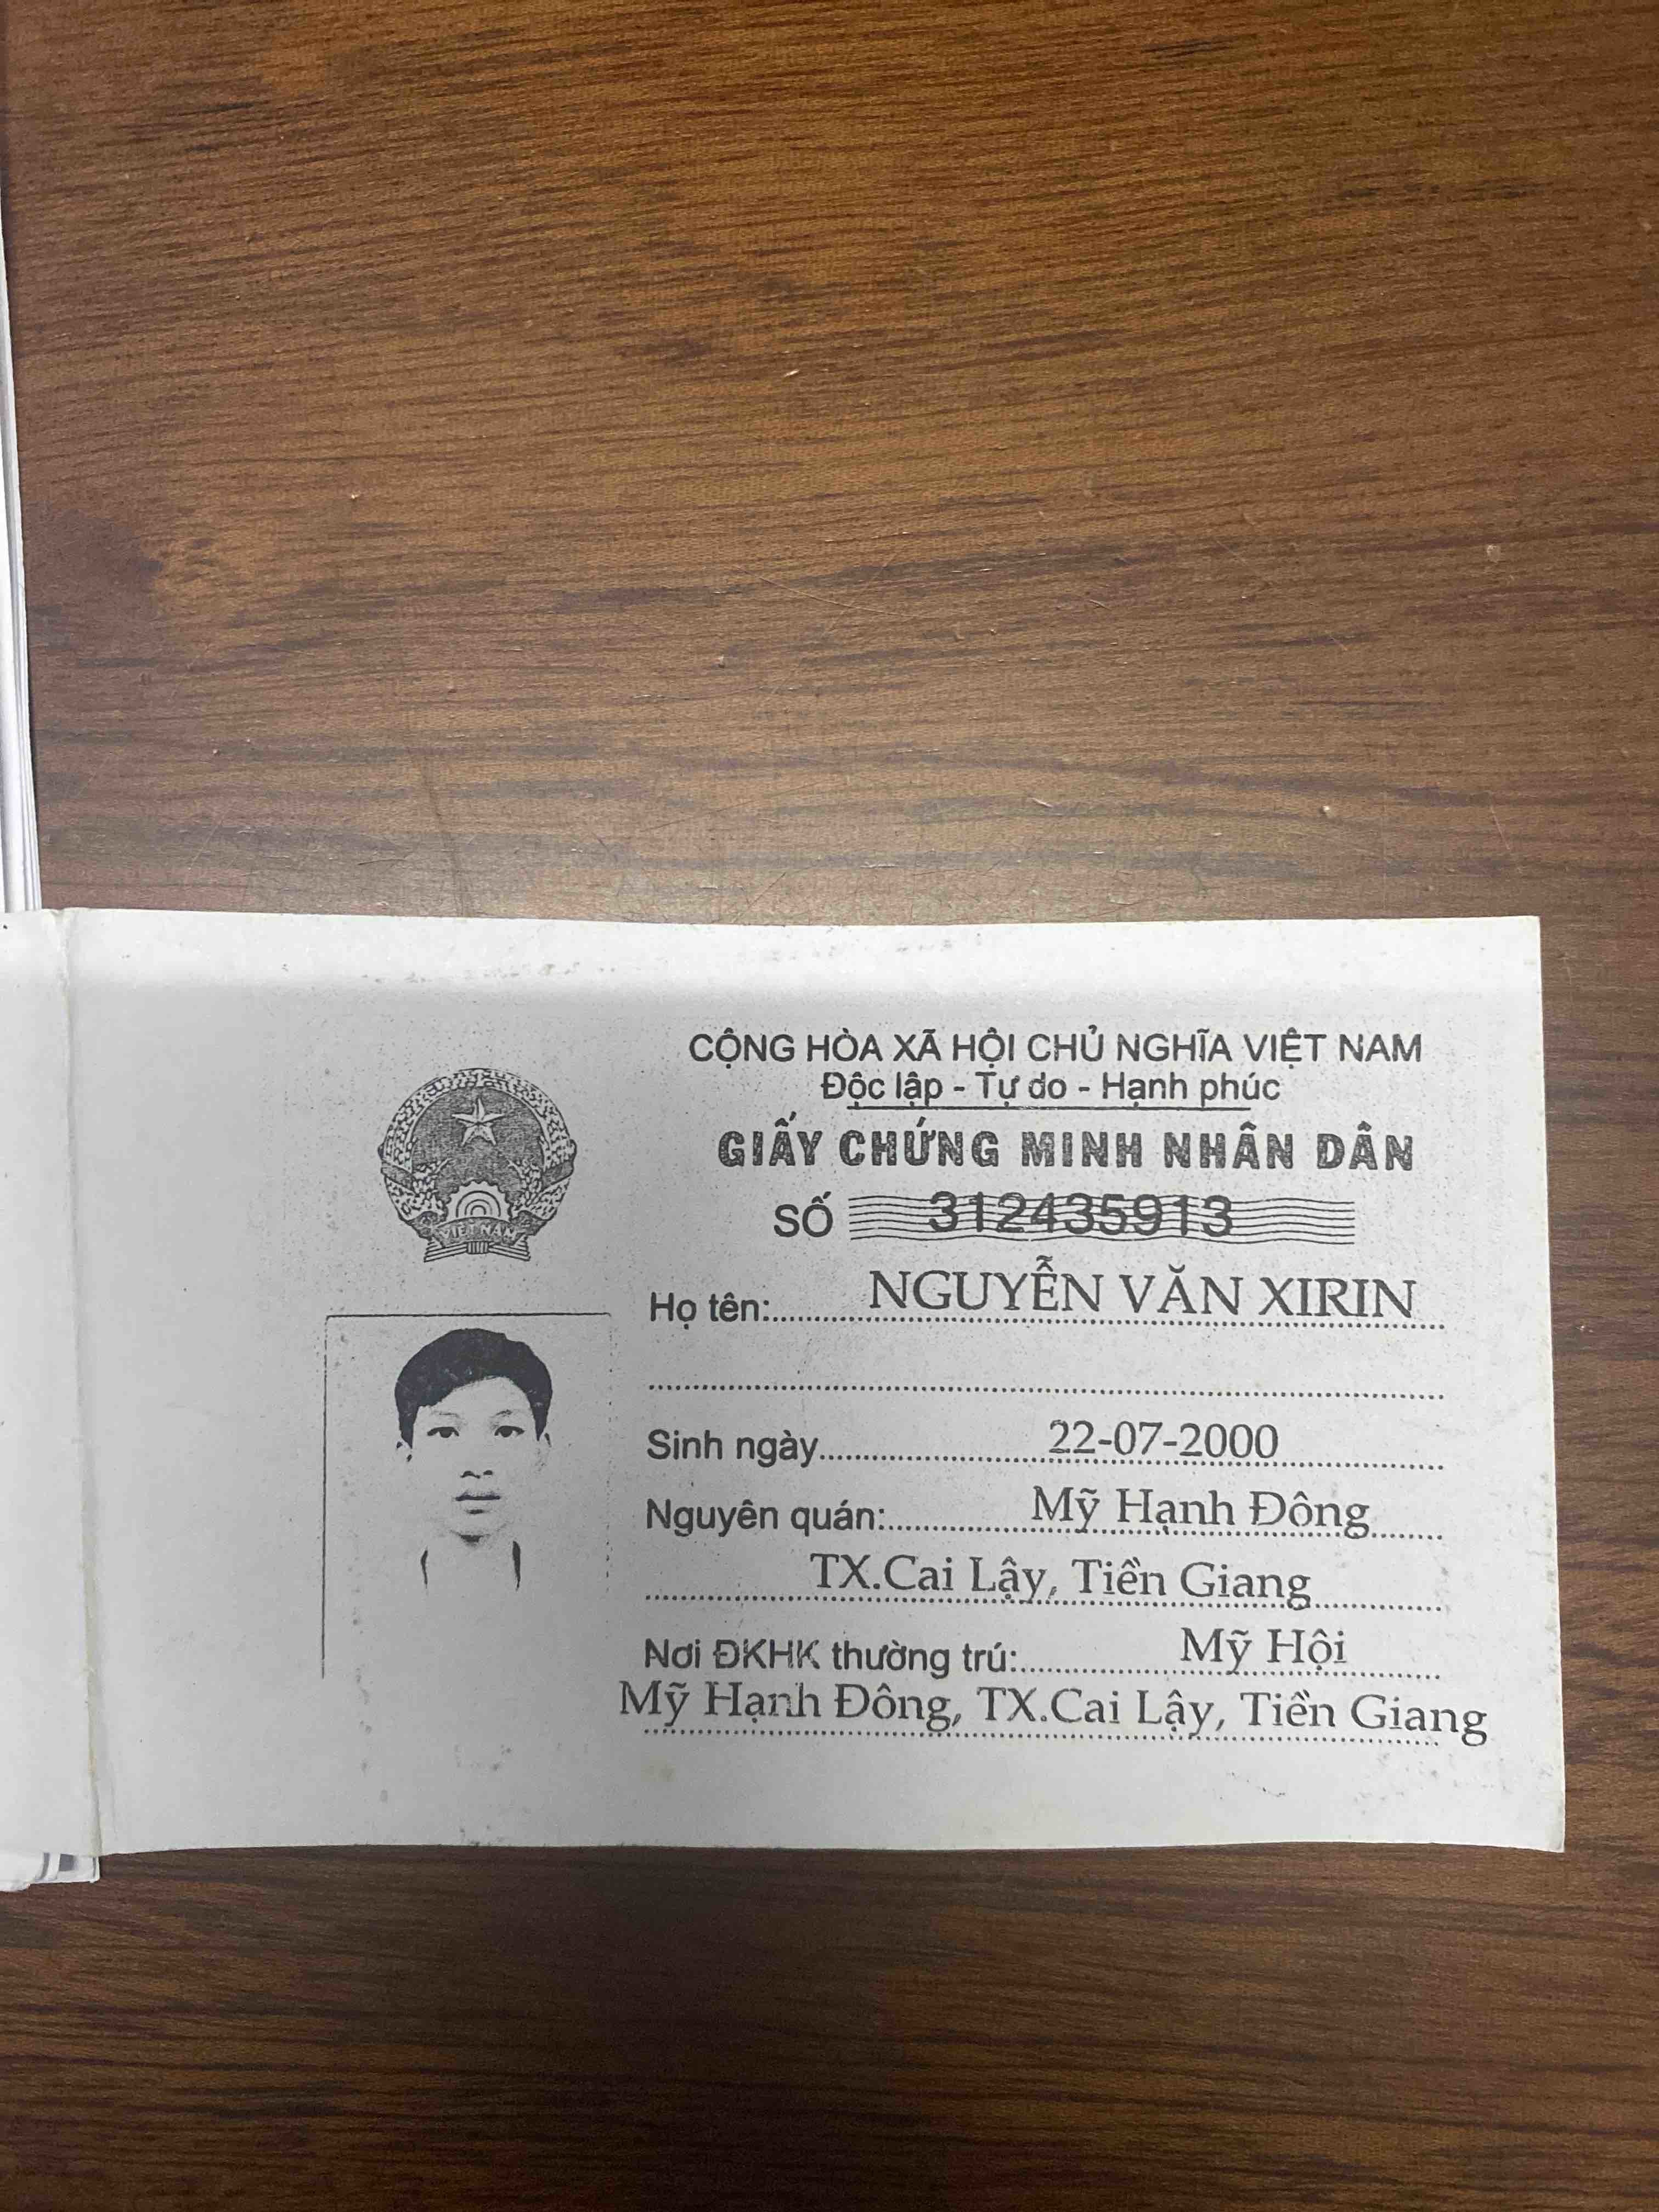 CỘNG HÒA XÃ HỘI CHỦ NGHĨA VIỆT NAM
Độc lập - Tự do - Hạnh phúc
GIẤY CHỨNG MINH NHÂN DÂN
SỐ 312435913
VIỆT NAM
Họ tên: NGUYỄN VĂN XIRIN
Sinh ngày 22-07-2000
Nguyên quán: Mỹ Hạnh Đông
TX.Cai Lậy, Tiền Giang
Nơi ĐKHK thường trú: Mỹ Hội
Mỹ Hạnh Đông, TX.Cai Lậy, Tiền Giang